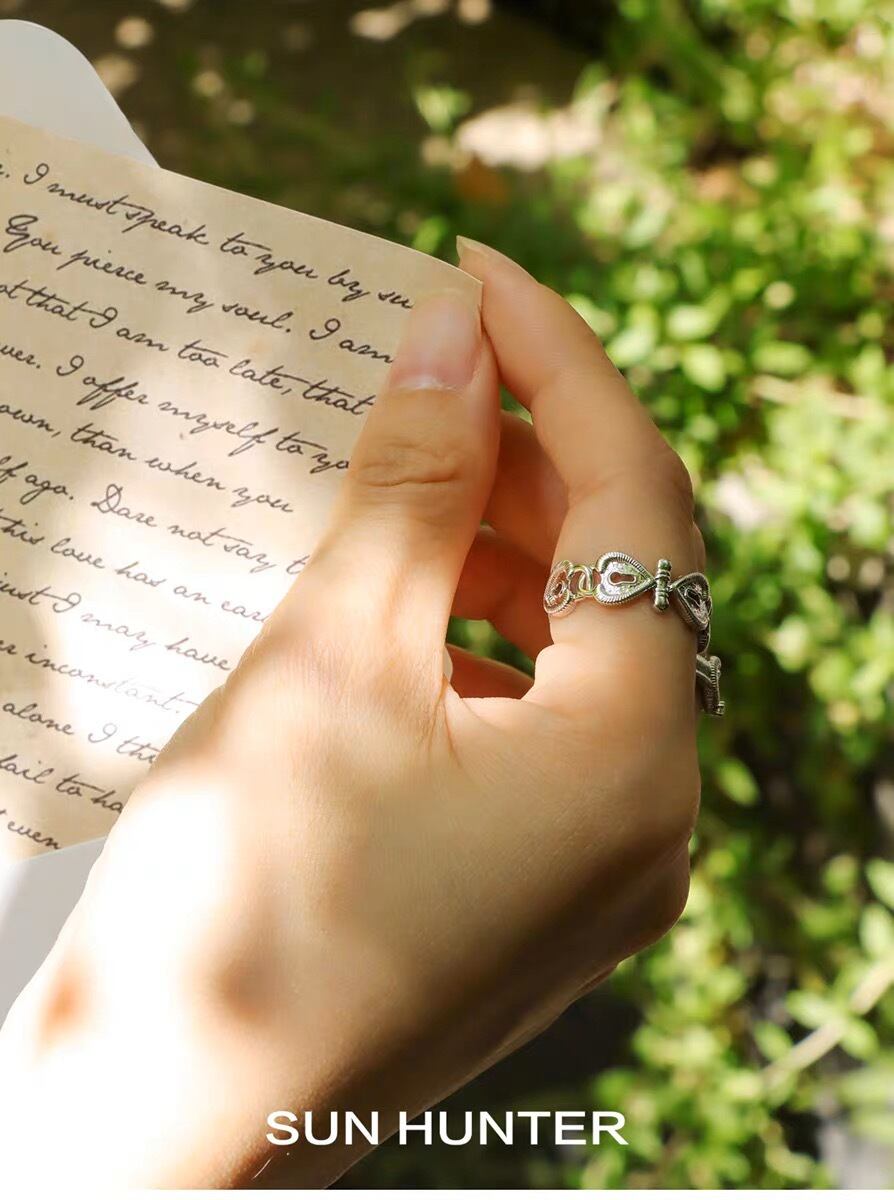 . I must speak to you by su
You pierce my soul. I am
ot that I am too late, that
ver. I offer myself to yo
own, than when you
lf ago. Dare not say t
this love has an earl
just I may have
er inconstant.
alone I thi
fail to ha
t even
SUN HUNTER